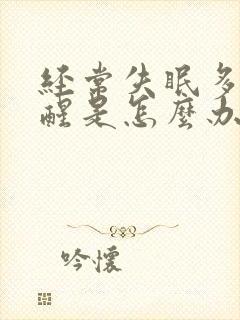 經常失眠多
醒是怎麼办
吟懷